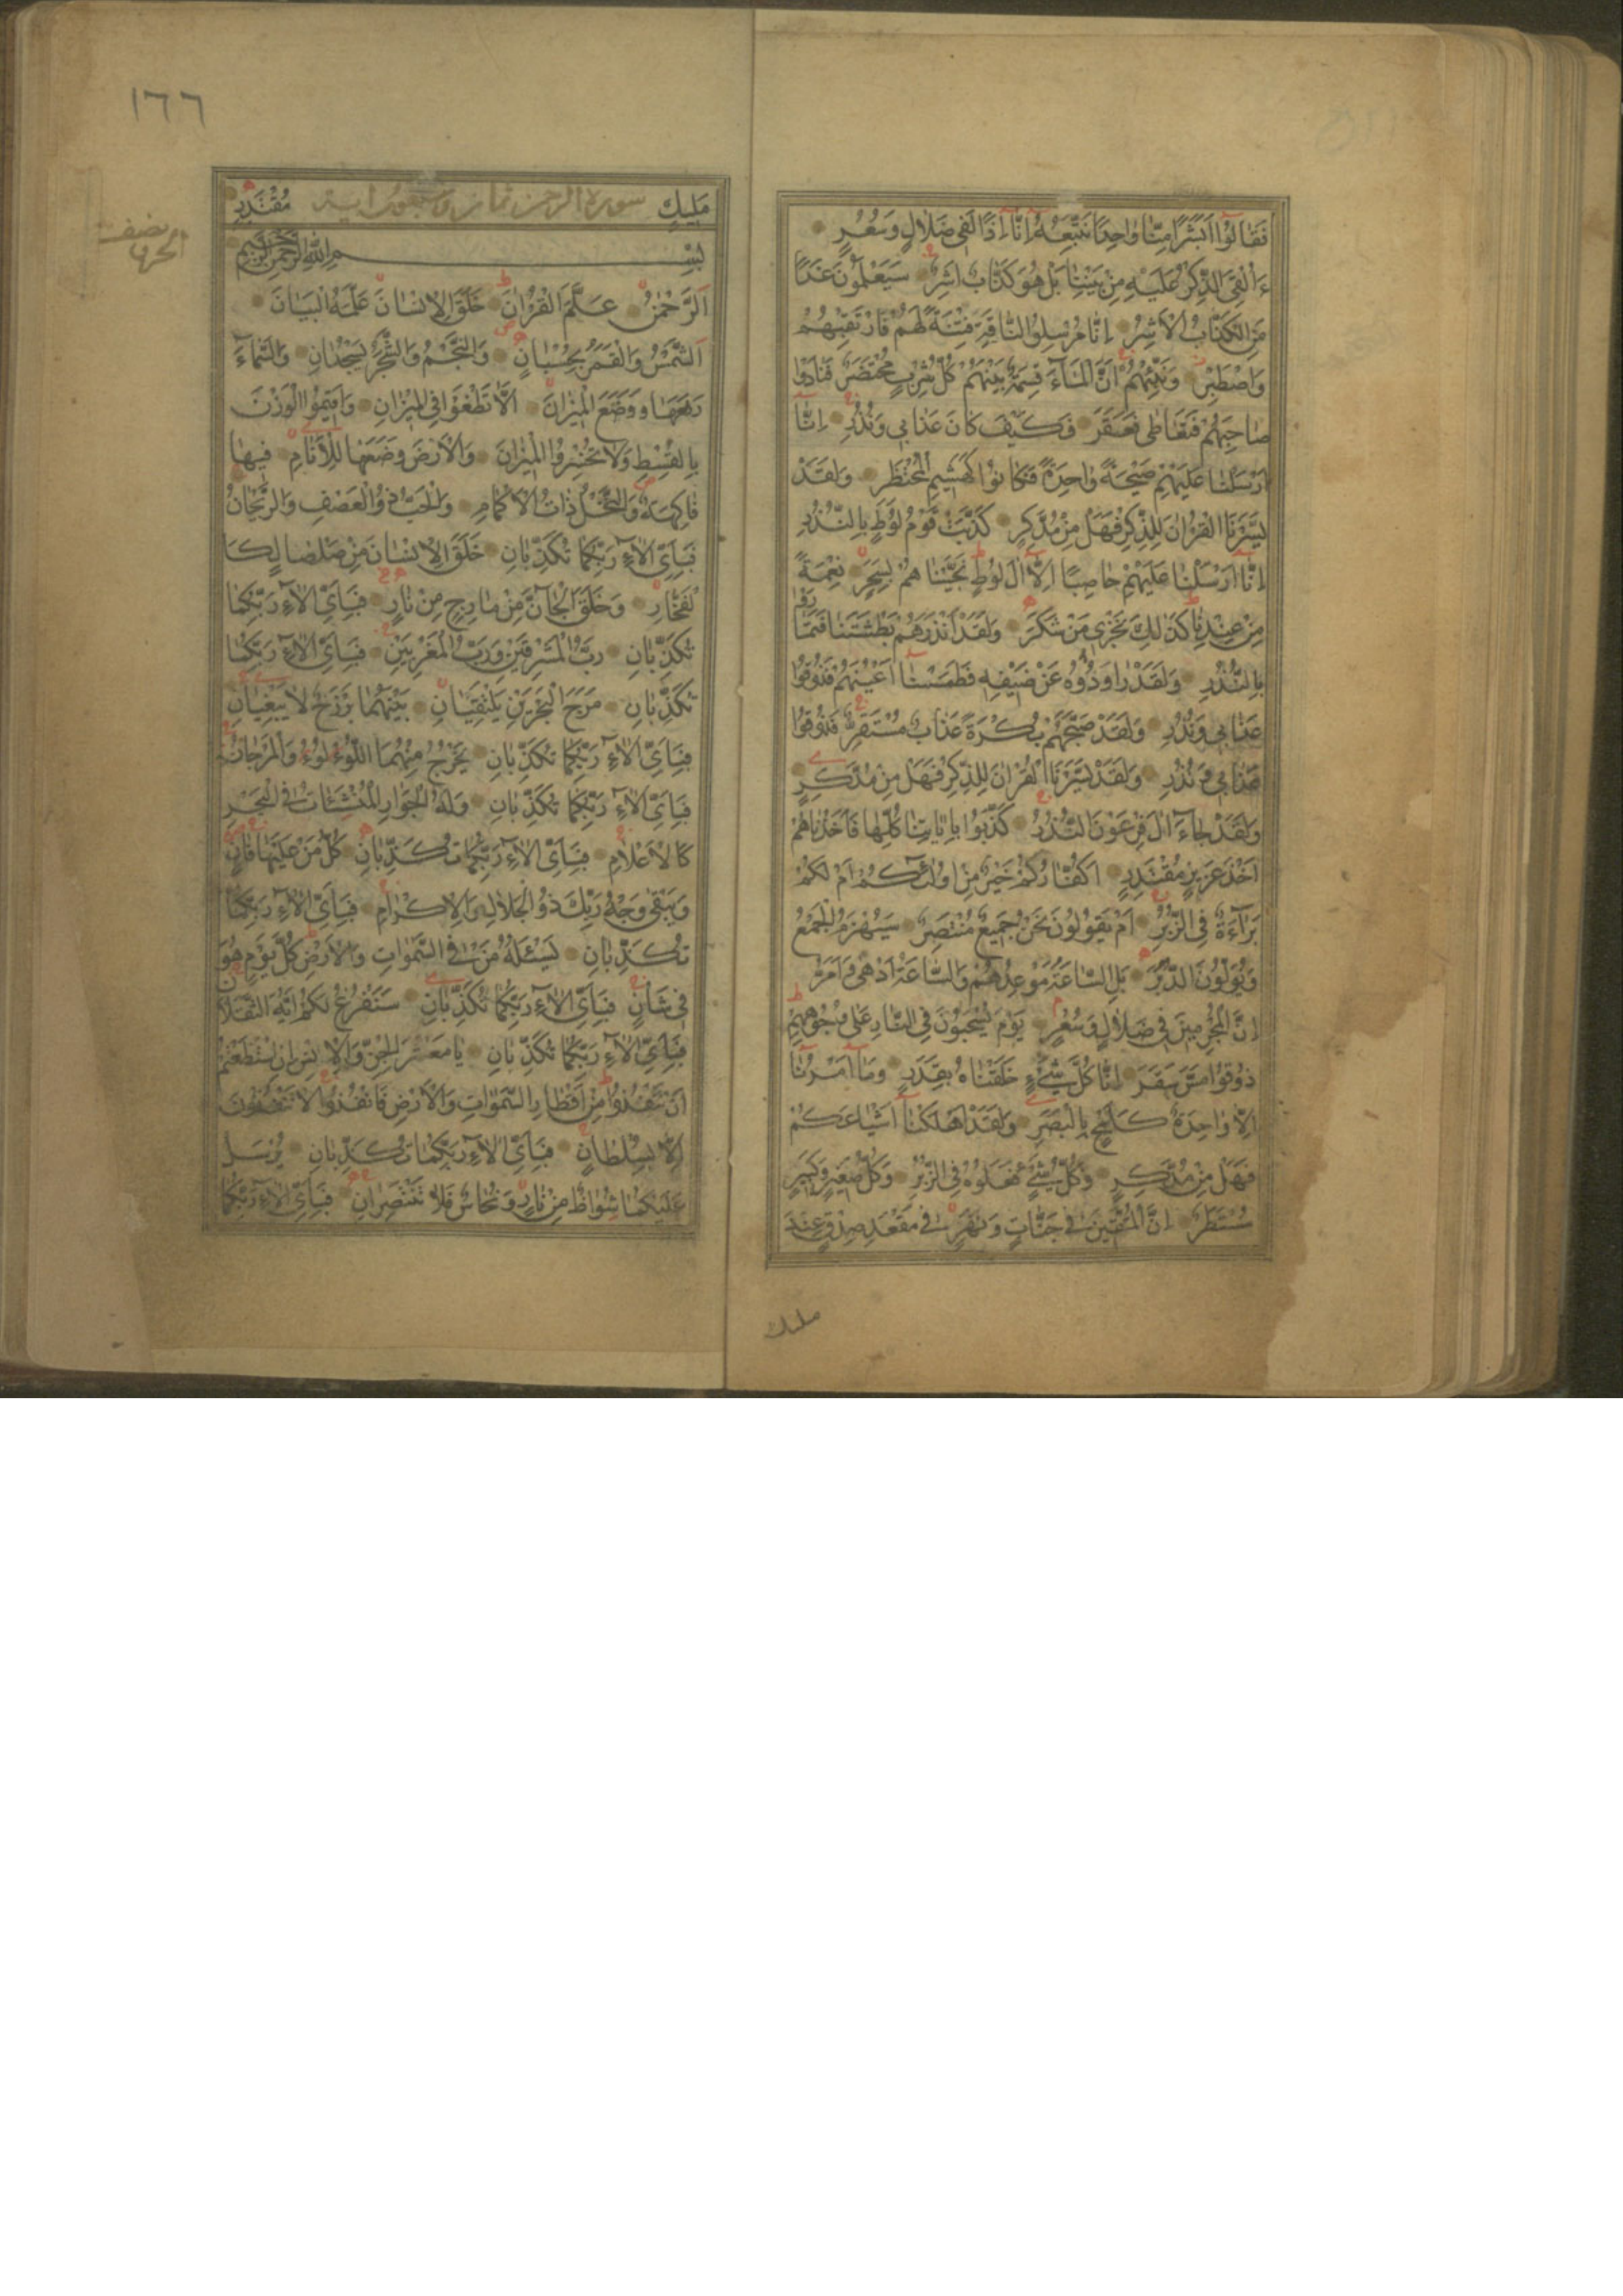 فَقَالُوا أَبَشَرًا مِنَّا وَاحِدًا نَتَّبِعُهُ إِنَّا إِذًا لَفِي ضَلَالٍ وَسُعُرٍ
ءَأُلْقِيَ الذِّكْرُ عَلَيْهِ مِنْ بَيْنِنَا بَلْ هُوَ كَذَّابٌ أَشِرٌ سَيَعْلَمُونَ غَدًا
مَنِ الْكَذَّابُ الْأَشِرُ إِنَّا مُرْسِلُوا النَّاقَةِ فِتْنَةً لَهُمْ فَارْتَقِبْهُمْ
وَاصْطَبِرْ وَنَبِّئْهُمْ أَنَّ الْمَاءَ قِسْمَةٌ بَيْنَهُمْ كُلُّ شِرْبٍ مُحْتَضَرٌ فَنَادَوْا
صَاحِبَهُمْ فَتَعَاطَى فَعَقَرَ فَكَيْفَ كَانَ عَذَابِي وَنُذُرِ إِنَّا
أَرْسَلْنَا عَلَيْهِمْ صَيْحَةً وَاحِدَةً فَكَانُوا كَهَشِيمِ الْمُحْتَظِرِ وَلَقَدْ
يَسَّرْنَا الْقُرْآنَ لِلذِّكْرِ فَهَلْ مِنْ مُدَّكِرٍ كَذَّبَتْ قَوْمُ لُوطٍ بِالنُّذُرِ
إِنَّا أَرْسَلْنَا عَلَيْهِمْ حَاصِبًا إِلَّا آلَ لُوطٍ نَجَّيْنَاهُمْ بِسَحَرٍ نِعْمَةً
مِنْ عِنْدِنَا كَذَلِكَ نَجْزِي مَنْ شَكَرَ وَلَقَدْ أَنْذَرَهُمْ بَطْشَتَنَا فَتَمَارَوْا
بِالنُّذُرِ وَلَقَدْ رَاوَدُوهُ عَنْ ضَيْفِهِ فَطَمَسْنَا أَعْيُنَهُمْ فَذُوقُوا
عَذَابِي وَنُذُرِ وَلَقَدْ صَبَّحَهُمْ بُكْرَةً عَذَابٌ مُسْتَقِرٌّ فَذُوقُوا
عَذَابِي وَنُذُرِ وَلَقَدْ يَسَّرْنَا الْقُرْآنَ لِلذِّكْرِ فَهَلْ مِنْ مُدَّكِرٍ
وَلَقَدْ جَاءَ آلَ فِرْعَوْنَ النُّذُرُ كَذَّبُوا بِآيَاتِنَا كُلِّهَا فَأَخَذْنَاهُمْ
أَخْذَ عَزِيزٍ مُقْتَدِرٍ أَكُفَّارُكُمْ خَيْرٌ مِنْ أُولَئِكُمْ أَمْ لَكُمْ
بَرَاءَةٌ فِي الزُّبُرِ أَمْ يَقُولُونَ نَحْنُ جَمِيعٌ مُنْتَصِرٌ سَيُهْزَمُ الْجَمْعُ
وَيُوَلُّونَ الدُّبُرَ بَلِ السَّاعَةُ مَوْعِدُهُمْ وَالسَّاعَةُ أَدْهَى وَأَمَرُّ
إِنَّ الْمُجْرِمِينَ فِي ضَلَالٍ وَسُعُرٍ يَوْمَ يُسْحَبُونَ فِي النَّارِ عَلَى وُجُوهِهِمْ
ذُوقُوا مَسَّ سَقَرَ إِنَّا كُلَّ شَيْءٍ خَلَقْنَاهُ بِقَدَرٍ وَمَا أَمْرُنَا
إِلَّا وَاحِدَةٌ كَلَمْحٍ بِالْبَصَرِ وَلَقَدْ أَهْلَكْنَا أَشْيَاعَكُمْ
فَهَلْ مِنْ مُدَّكِرٍ وَكُلُّ شَيْءٍ فَعَلُوهُ فِي الزُّبُرِ وَكُلُّ صَغِيرٍ وَكَبِيرٍ
مُسْتَطَرٌ إِنَّ الْمُتَّقِينَ فِي جَنَّاتٍ وَنَهَرٍ فِي مَقْعَدِ صِدْقٍ عِنْدَ
مليك
١٦٦
مَلِيكٍ سورة الرحمن ثمان وسبعون آية مُقْتَدِرٍ
بِسْمِ اللَّهِ الرَّحْمَنِ الرَّحِيمِ
نصف الحزب
الرَّحْمَنُ عَلَّمَ الْقُرْآنَ خَلَقَ الْإِنْسَانَ عَلَّمَهُ الْبَيَانَ
الشَّمْسُ وَالْقَمَرُ بِحُسْبَانٍ وَالنَّجْمُ وَالشَّجَرُ يَسْجُدَانِ وَالسَّمَاءَ
رَفَعَهَا وَوَضَعَ الْمِيزَانَ أَلَّا تَطْغَوْا فِي الْمِيزَانِ وَأَقِيمُوا الْوَزْنَ
بِالْقِسْطِ وَلَا تُخْسِرُوا الْمِيزَانَ وَالْأَرْضَ وَضَعَهَا لِلْأَنَامِ فِيهَا
فَاكِهَةٌ وَالنَّخْلُ ذَاتُ الْأَكْمَامِ وَالْحَبُّ ذُو الْعَصْفِ وَالرَّيْحَانُ
فَبِأَيِّ آلَاءِ رَبِّكُمَا تُكَذِّبَانِ خَلَقَ الْإِنْسَانَ مِنْ صَلْصَالٍ كَا
لْفَخَّارِ وَخَلَقَ الْجَانَّ مِنْ مَارِجٍ مِنْ نَارٍ فَبِأَيِّ آلَاءِ رَبِّكُمَا
تُكَذِّبَانِ رَبُّ الْمَشْرِقَيْنِ وَرَبُّ الْمَغْرِبَيْنِ فَبِأَيِّ آلَاءِ رَبِّكُمَا
تُكَذِّبَانِ مَرَجَ الْبَحْرَيْنِ يَلْتَقِيَانِ بَيْنَهُمَا بَرْزَخٌ لَا يَبْغِيَانِ
فَبِأَيِّ آلَاءِ رَبِّكُمَا تُكَذِّبَانِ يَخْرُجُ مِنْهُمَا اللُّؤْلُؤُ وَالْمَرْجَانُ
فَبِأَيِّ آلَاءِ رَبِّكُمَا تُكَذِّبَانِ وَلَهُ الْجَوَارِ الْمُنْشَئَاتُ فِي الْبَحْرِ
كَالْأَعْلَامِ فَبِأَيِّ آلَاءِ رَبِّكُمَا تُكَذِّبَانِ كُلُّ مَنْ عَلَيْهَا فَانٍ
وَيَبْقَى وَجْهُ رَبِّكَ ذُو الْجَلَالِ وَالْإِكْرَامِ فَبِأَيِّ آلَاءِ رَبِّكُمَا
تُكَذِّبَانِ يَسْئَلُهُ مَنْ فِي السَّمَوَاتِ وَالْأَرْضِ كُلَّ يَوْمٍ هُوَ
فِي شَأْنٍ فَبِأَيِّ آلَاءِ رَبِّكُمَا تُكَذِّبَانِ سَنَفْرُغُ لَكُمْ أَيُّهَ الثَّقَلَانِ
فَبِأَيِّ آلَاءِ رَبِّكُمَا تُكَذِّبَانِ يَا مَعْشَرَ الْجِنِّ وَالْإِنْسِ إِنِ اسْتَطَعْتُمْ
أَنْ تَنْفُذُوا مِنْ أَقْطَارِ السَّمَوَاتِ وَالْأَرْضِ فَانْفُذُوا لَا تَنْفُذُونَ
إِلَّا بِسُلْطَانٍ فَبِأَيِّ آلَاءِ رَبِّكُمَا تُكَذِّبَانِ يُرْسَلُ
عَلَيْكُمَا شُوَاظٌ مِنْ نَارٍ وَنُحَاسٌ فَلَا تَنْتَصِرَانِ فَبِأَيِّ آلَاءِ رَبِّكُمَا